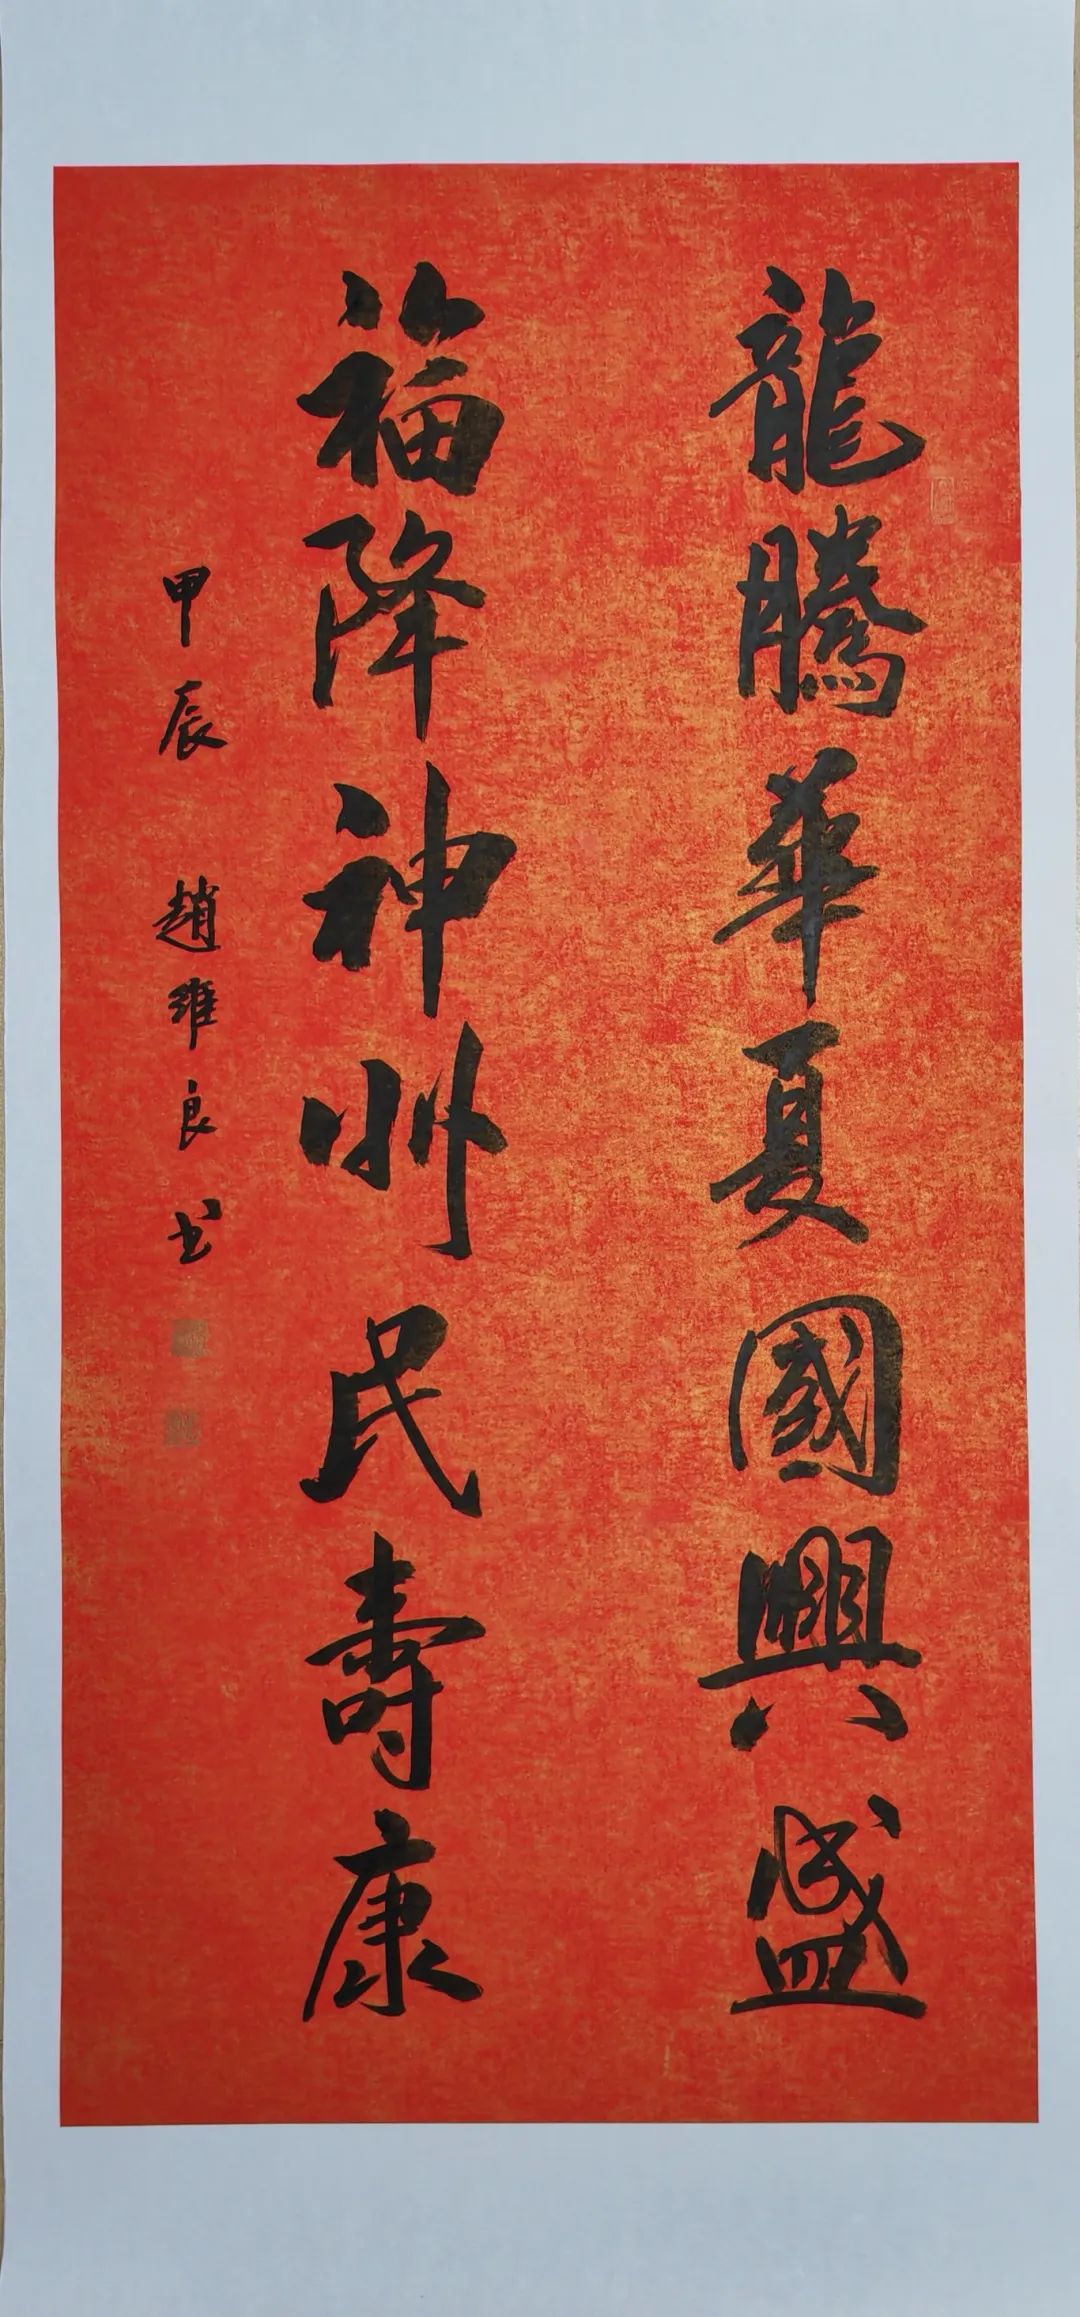 龍騰華夏國興盛
福降神州民壽康
甲辰 趙維良书